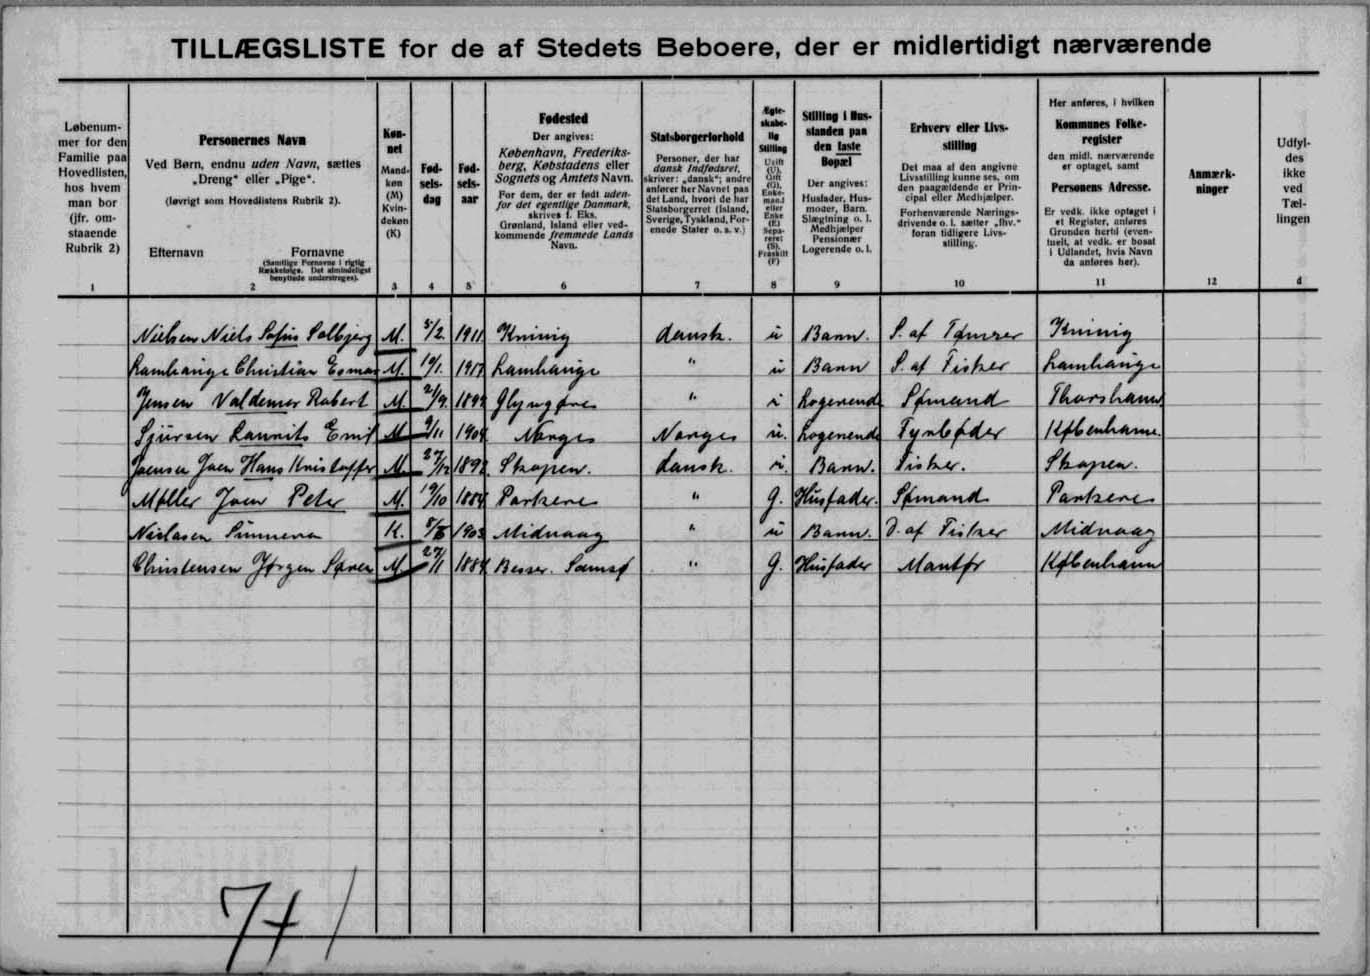 TILLÆGSLISTE for de af Stedets Beboere, der er midlertidigt nærværende
Løbenum-
mer for den
Familie paa
Hovedlisten,
hos hvem
man bor
(jfr. om-
staaende
Rubrik 2)
1
Personernes Navn
Ved Børn, endnu uden Navn, sættes
„Dreng“ eller „Pige“.
(Iøvrigt som Hovedlistens Rubrik 2).
Efternavn Fornavne
(Samtlige Fornavne i rigtig
Rækkefølge. Det almindeligst
benyttede understreges).
2
Køn-
net
Mand-
køn
(M)
Kvin-
dekøn
(K)
3
Fød-
sels-
dag
4
Fød-
sels-
aar
5
Fødested
Der angives:
København, Frederiks-
berg, Købstadens eller
Sognets og Amtets Navn.
For dem, der er født uden-
for det egentlige Danmark,
skrives f. Eks.
Grønland, Island eller ved-
kommende fremmede Lands
Navn.
6
Statsborgerforhold
Personer, der har
dansk Indfødsret,
skriver: „dansk“; andre
anfører her Navnet paa
det Land, hvori de har
Statsborgerret (Island,
Sverige, Tyskland, For-
enede Stater o. s. v.)
7
Ægte-
skabe-
lig
Stilling
Ugift
(U),
Gift
(G),
Enke-
mand
eller
Enke
(E)
Sepa-
reret
(S),
Fraskilt
(F)
8
Stilling i Hus-
standen paa
den faste
Bopæl
Der angives:
Husfader, Hus-
moder, Barn.
Slægtning o. l.
Medhjælper
Pensionær
Logerende o. l.
9
Erhverv eller Livs-
stilling
Det maa af den angivne
Livsstilling kunne ses, om
den paagældende er Prin-
cipal eller Medhjælper.
Forhenværende Nærings-
drivende o. l. sætter „fhv.“
foran tidligere Livs-
stilling.
10
Her anføres, i hvilken
Kommunes Folke-
register
den midl. nærværende
er optaget, samt
Personens Adresse.
Er vedk. ikke optaget i
et Register, anføres
Grunden hertil (even-
tuelt, at vedk. er bosat
i Udlandet, hvis Navn
da anføres her).
11
Anmærk-
ninger
12
Udfyl-
des
ikke
ved
Tæl-
lingen
d
Nielsen Niels Sofus Solbjerg M. 5/2. 1911 Kvivig dansk. u Barn. S. af Kvivig
Lamhauge Christian Esmar M. 1917 Lamhauge " u Barn S. af Fisker Lamhauge
Jensen Valdemar Robert M. 21/9. Glyngøre " Logerende Sømand Thorshavn
Sjursen Laurits Emil M. 9/11 1904 Norge Norge u. Logerende Fyrbøder København.
Joensen Joen Hans Kristoffer M. 27/12 1892 Skopen. dansk. u. Barn. Fisker. Skopen.
Møller Joen Peter M. 19/10 1884 Porkere " g. Husfader. Sømand Porkere
Niclasen Sunneva K. 1903 Midvaag " u Barn. D. af Fisker Midvaag
Christensen Jørgen Søren M. 27/11 1884 Besser. Samsø " g. Husfader Montør København
74